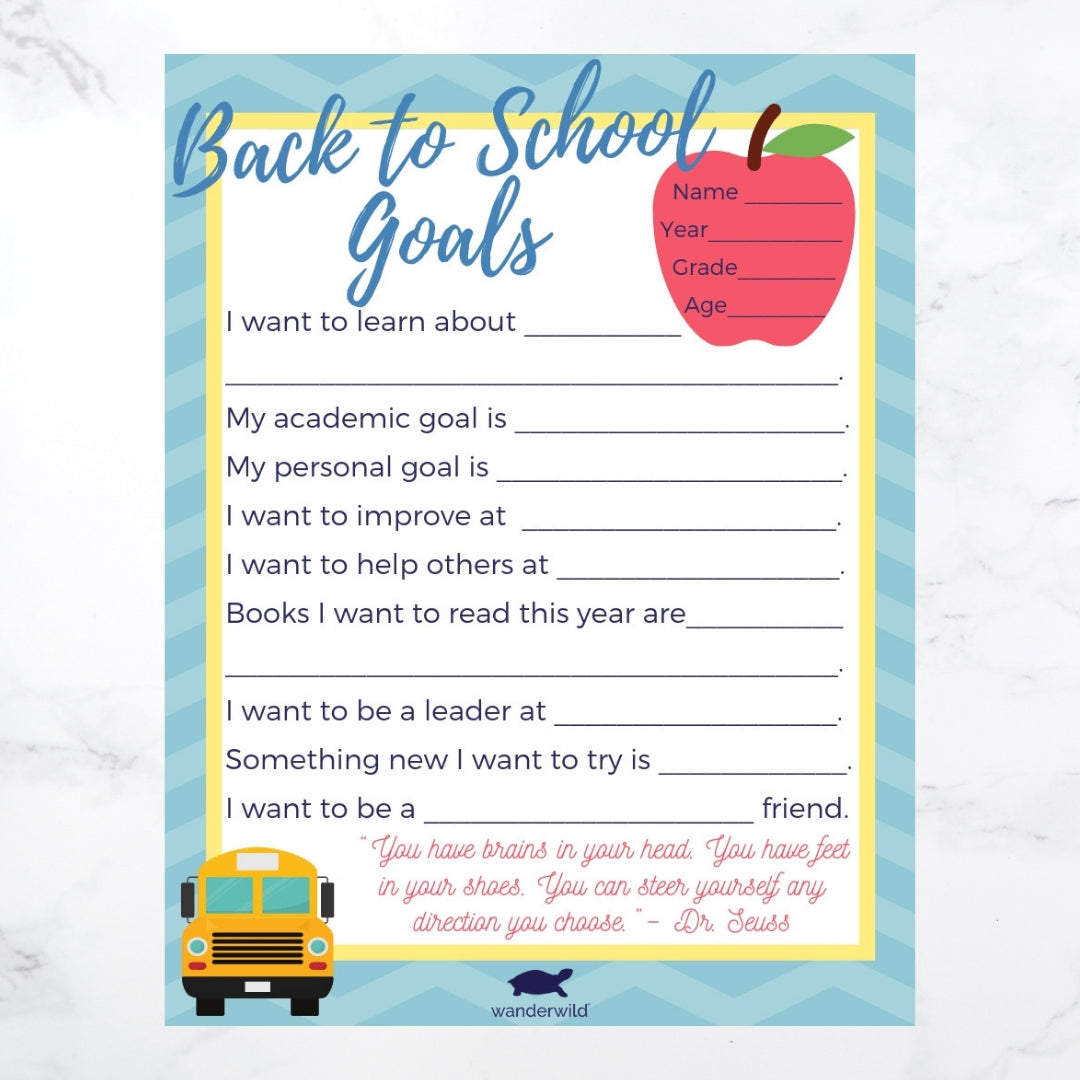 Back to School
Goals
Name ________
Year___________
Grade________
Age________
I want to learn about ___________
___________________________________________.
My academic goal is _______________________.
My personal goal is ________________________.
I want to improve at ______________________.
I want to help others at ____________________.
Books I want to read this year are___________
___________________________________________.
I want to be a leader at ____________________.
Something new I want to try is _____________.
I want to be a _______________________ friend.
“You have brains in your head. You have feet
in your shoes. You can steer yourself any
direction you choose.” – Dr. Seuss
wanderwild